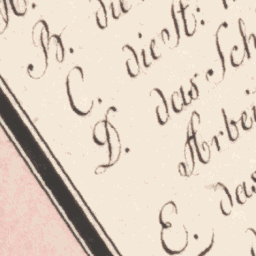 B. die
C. die St:
D. das Sch
Arbei
E. das